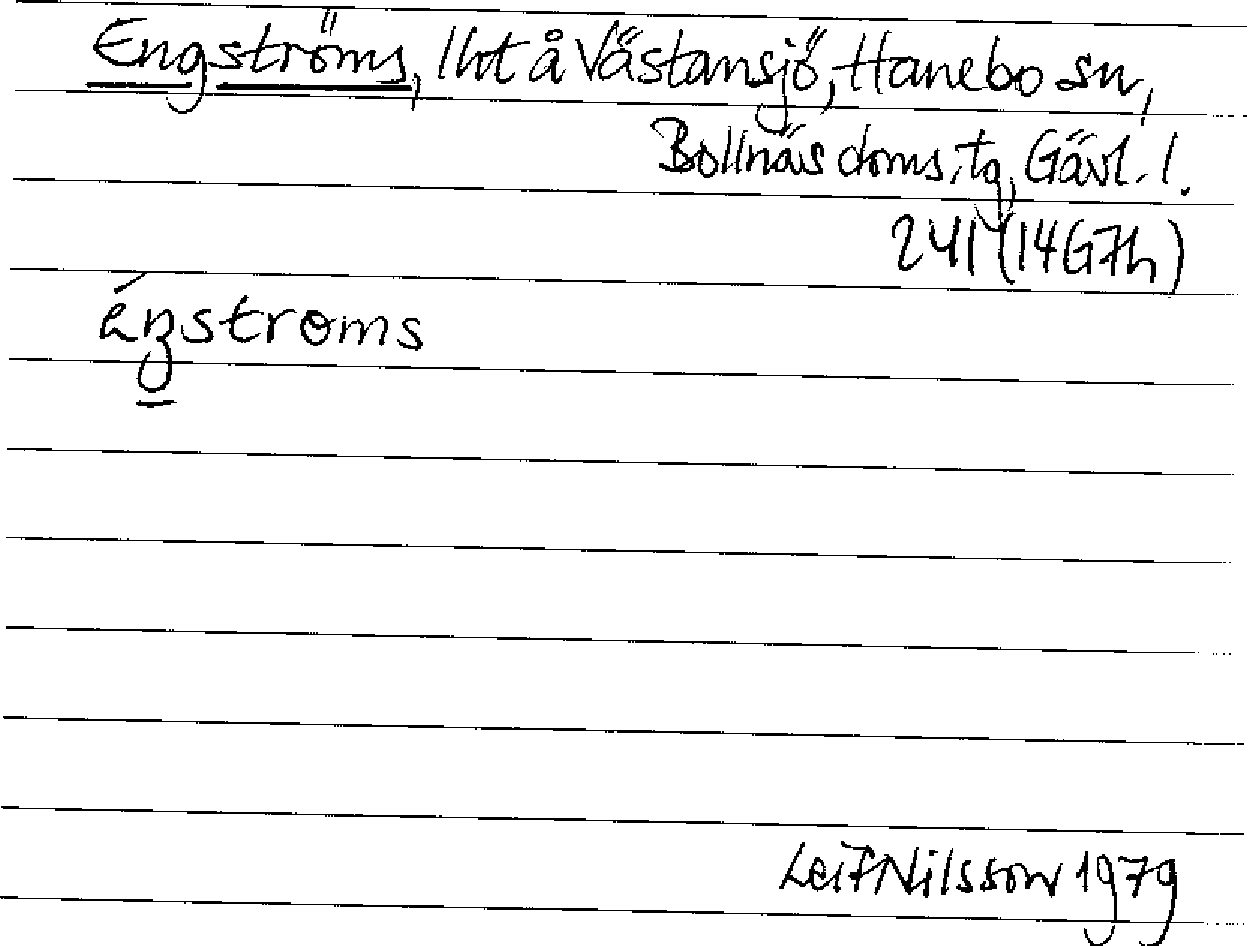 Engströms, lht å Västansjö, Hanebo sn,
Bollnäs doms. tg, Gävl. l.
241 (14G7h)
éŋstroms
Leif Nilsson 1979